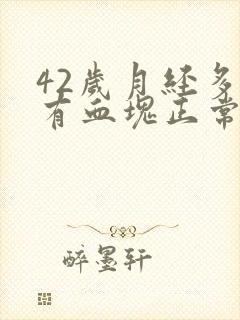 42歲月经多
有血塊正常
醉墨轩